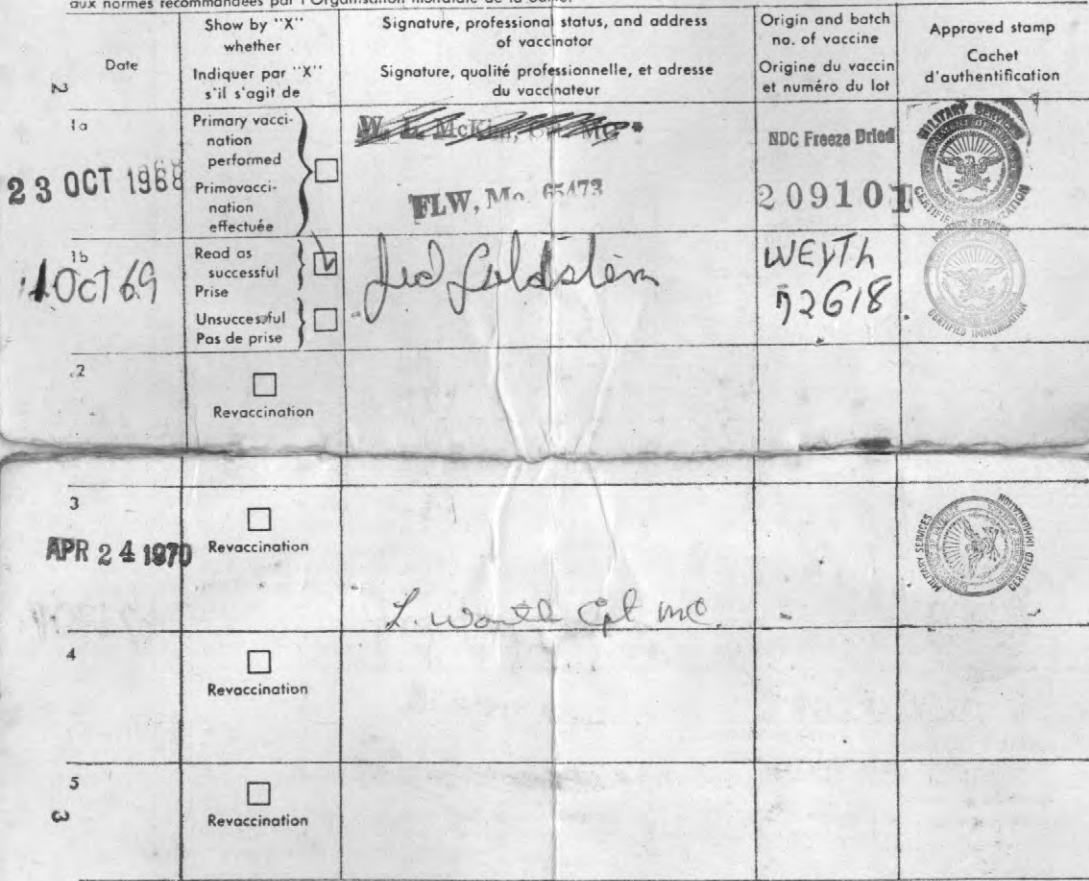 aux normes recommandées par l'Organisation mondiale de la Santé.
Date
Show by "X"
whether
Indiquer par "X"
s'il s'agit de
Signature, professional status, and address
of vaccinator
Signature, qualité professionnelle, et adresse
du vaccinateur
Origin and batch
no. of vaccine
Origine du vaccin
et numéro du lot
Approved stamp
Cachet
d'authentification
2
1a
23 OCT 1968
Primary vacci-
nation
performed
Primovacci-
nation
effectuée
W. L. McKim, MC
FLW, Mo. 65473
NDC Freeze Dried
209101
MILITARY SERVICES
1b
1 Oct 69
Read as
successful
Prise
Unsuccessful
Pas de prise
Goldstein
WEYTh
72618
MILITARY SERVICES
CERTIFIED IMMUNIZATION
2
Revaccination
3
APR 24 1970
Revaccination
L. Worth Cpt MC.
MILITARY SERVICES
CERTIFIED IMMUNIZATION
4
Revaccination
5
Revaccination
3